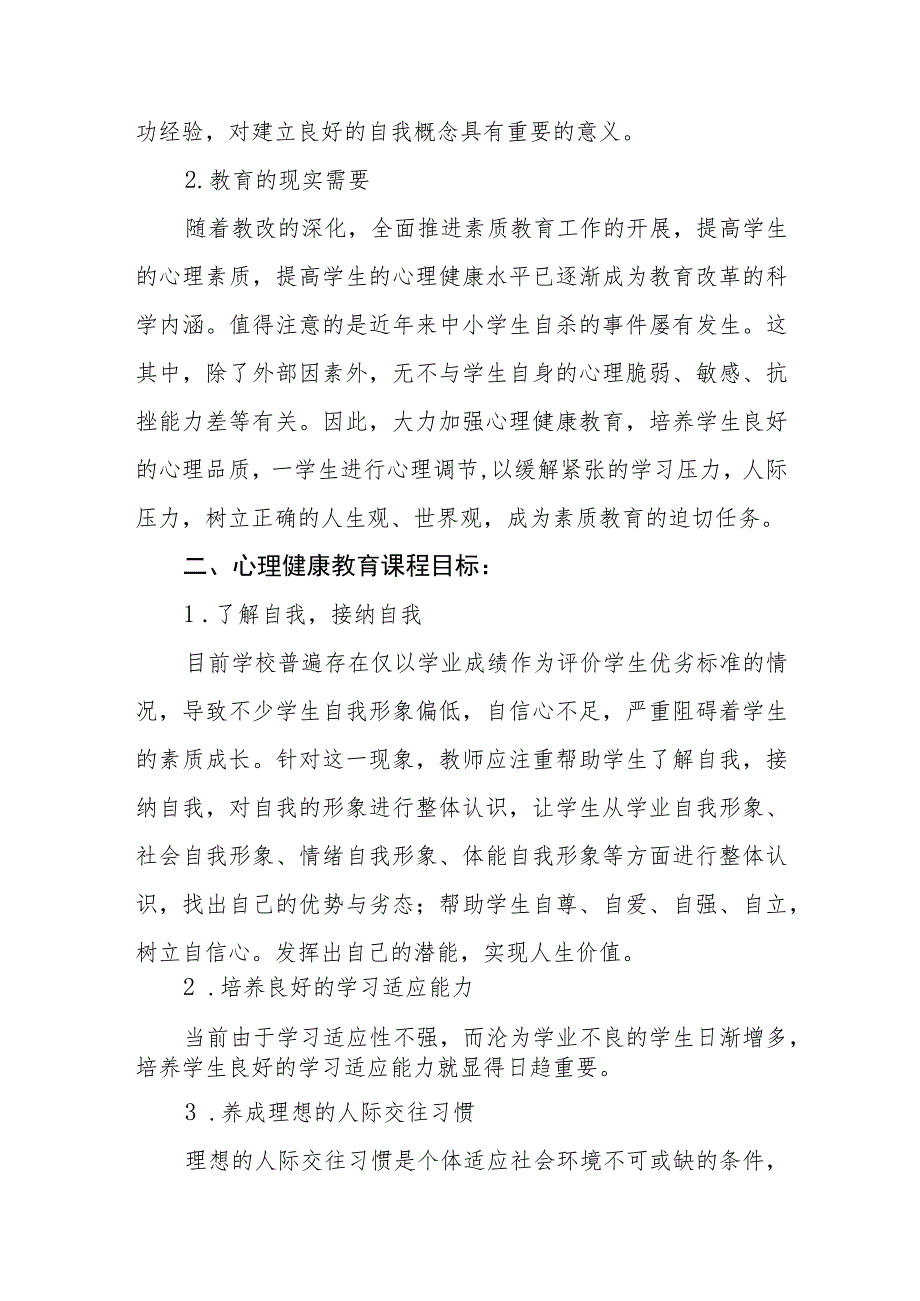 功经验，对建立良好的自我概念具有重要的意义。
2.教育的现实需要
随着教改的深化，全面推进素质教育工作的开展，提高学生
的心理素质，提高学生的心理健康水平已逐渐成为教育改革的科
学内涵。值得注意的是近年来中小学生自杀的事件屡有发生。这
其中，除了外部因素外，无不与学生自身的心理脆弱、敏感、抗
挫能力差等有关。因此，大力加强心理健康教育，培养学生良好
的心理品质，一学生进行心理调节,以缓解紧张的学习压力，人际
压力，树立正确的人生观、世界观，成为素质教育的迫切任务。
二、心理健康教育课程目标：
1.了解自我，接纳自我
目前学校普遍存在仅以学业成绩作为评价学生优劣标准的情
况，导致不少学生自我形象偏低，自信心不足，严重阻碍着学生
的素质成长。针对这一现象，教师应注重帮助学生了解自我，接
纳自我，对自我的形象进行整体认识，让学生从学业自我形象、
社会自我形象、情绪自我形象、体能自我形象等方面进行整体认
识，找出自己的优势与劣态；帮助学生自尊、自爱、自强、自立，
树立自信心。发挥出自己的潜能，实现人生价值。
2.培养良好的学习适应能力
当前由于学习适应性不强，而沦为学业不良的学生日渐增多，
培养学生良好的学习适应能力就显得日趋重要。
3.养成理想的人际交往习惯
理想的人际交往习惯是个体适应社会环境不可或缺的条件，